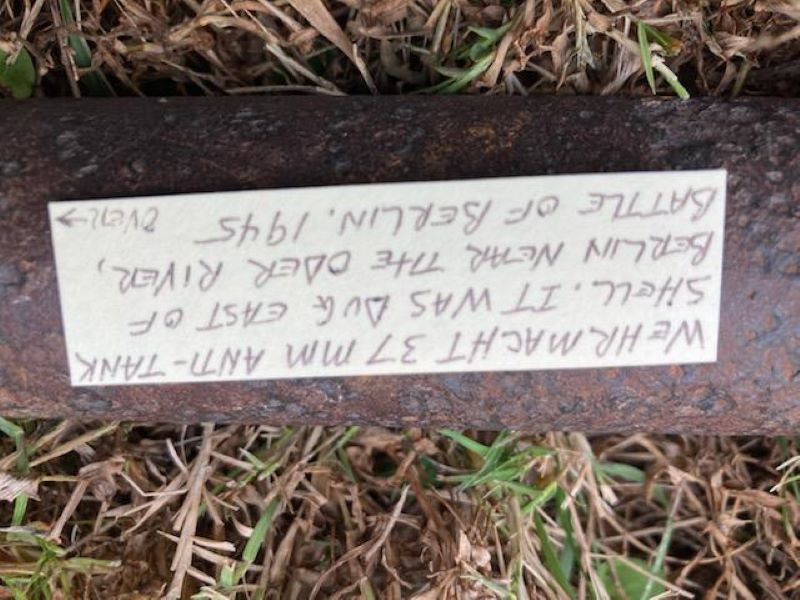 WEHRMACHT 37 MM ANTI-TANK
SHELL. IT WAS DUG EAST OF
BERLIN NEAR THE ODER RIVER,
BATTLE OF BERLIN. 1945
OVER→